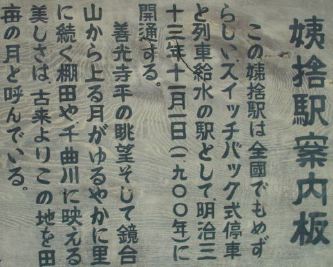 姨捨駅案内板
この姨捨駅は全国でもめず
らしいスイッチバック式停車
と列車給水の駅として、明治三
十三年十一月一日(一九〇〇年)に
開通する。
善光寺平の眺望そして鏡台
山から上る月がゆるやかに里
に続く棚田や千曲川に映える
美しさは、古来よりこの地を田
毎の月と呼んでいる。